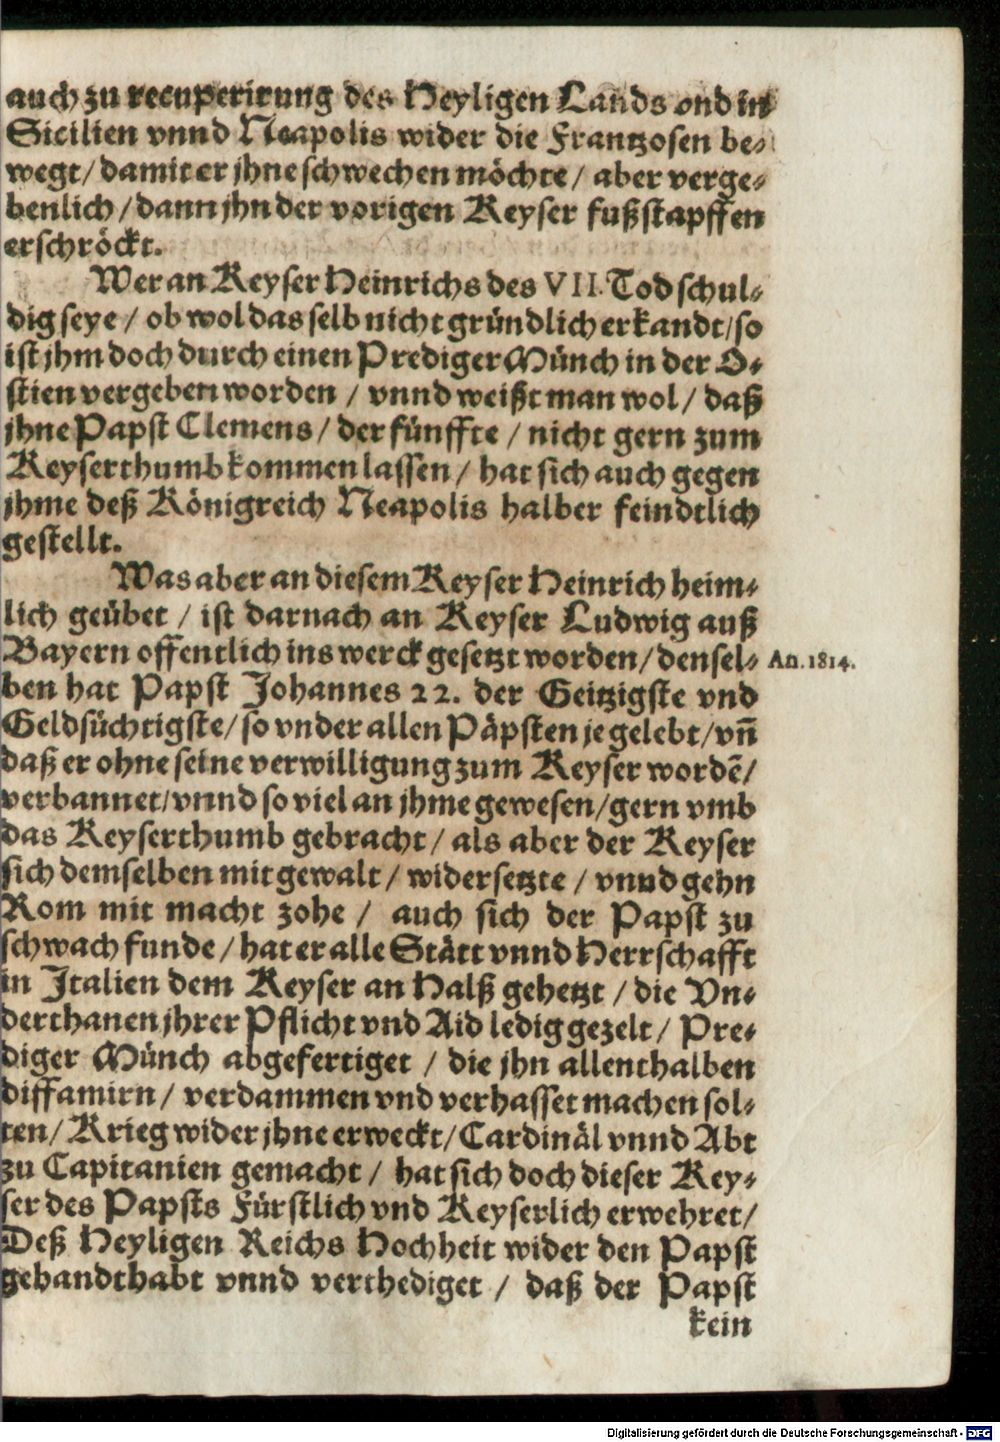 auch zu recuperirung des Heyligen Lands vnd in
Sicilien vnnd Neapolis wider die Frantzosen be⸗
wegt/ damit er jhne schwechen möchte/ aber verge⸗
benlich/ dann jhn der vorigen Keyser fußstapffen
erschröckt.
Wer an Keyser Heinrichs des VII. Tod schul⸗
dig seye/ ob wol das selb nicht gründlich erkandt/ so
ist jhm doch durch einen Prediger Münch in der O⸗
stien vergeben worden/ vnnd weißt man wol/ daß
jhne Papst Clemens/ der fünffte/ nicht gern zum
Keyserthumb kommen lassen/ hat sich auch gegen
jhme deß Königreich Neapolis halber feindtlich
gestellt.
Was aber an diesem Keyser Heinrich heim⸗
lich geübet/ ist darnach an Keyser Ludwig auß
Bayern offentlich ins werck gesetzt worden/ densel⸗
An. 1814.
ben hat Papst Johannes 22. der Geitzigste vnd
Geldsüchtigste/ so vnder allen Päpsten je gelebt/ vñ
daß er ohne seine verwilligung zum Keyser wordẽ/
verbannet/ vnnd so viel an jhme gewesen/ gern vmb
das Keyserthumb gebracht/ als aber der Keyser
sich demselben mit gewalt/ widersetzte/ vnnd gehn
Rom mit macht zohe/ auch sich der Papst zu
schwach funde/ hat er alle Stätt vnnd Herrschafft
in Italien dem Keyser an Halß gehetzt/ die Vn⸗
derthanen jhrer Pflicht vnd Aid ledig gezelt/ Pre⸗
diger Münch abgefertiget/ die jhn allenthalben
diffamirn/ verdammen vnd verhasset machen sol⸗
ten/ Krieg wider jhne erweckt/ Cardinäl vnnd Abt
zu Capitanien gemacht/ hat sich doch dieser Key⸗
ser des Papsts Fürstlich vnd Keyserlich erwehret/
Deß Heyligen Reichs Hochheit wider den Papst
gehandthabt vnnd verthediget/ daß der Papst
kein
Digitalisierung gefördert durch die Deutsche Forschungsgemeinschaft - DFG